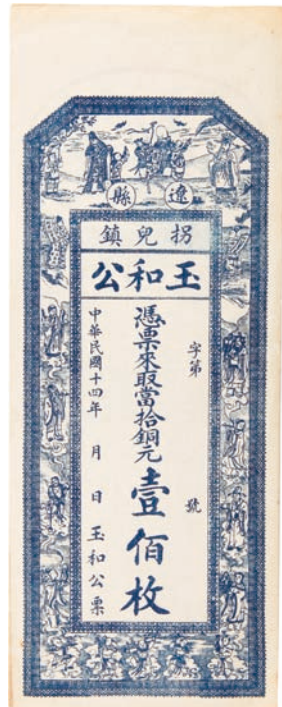 遼縣
拐兒鎮
玉和公
字第 號
憑票來取當拾銅元壹佰枚
中華民國十四年 月 日 玉和公票